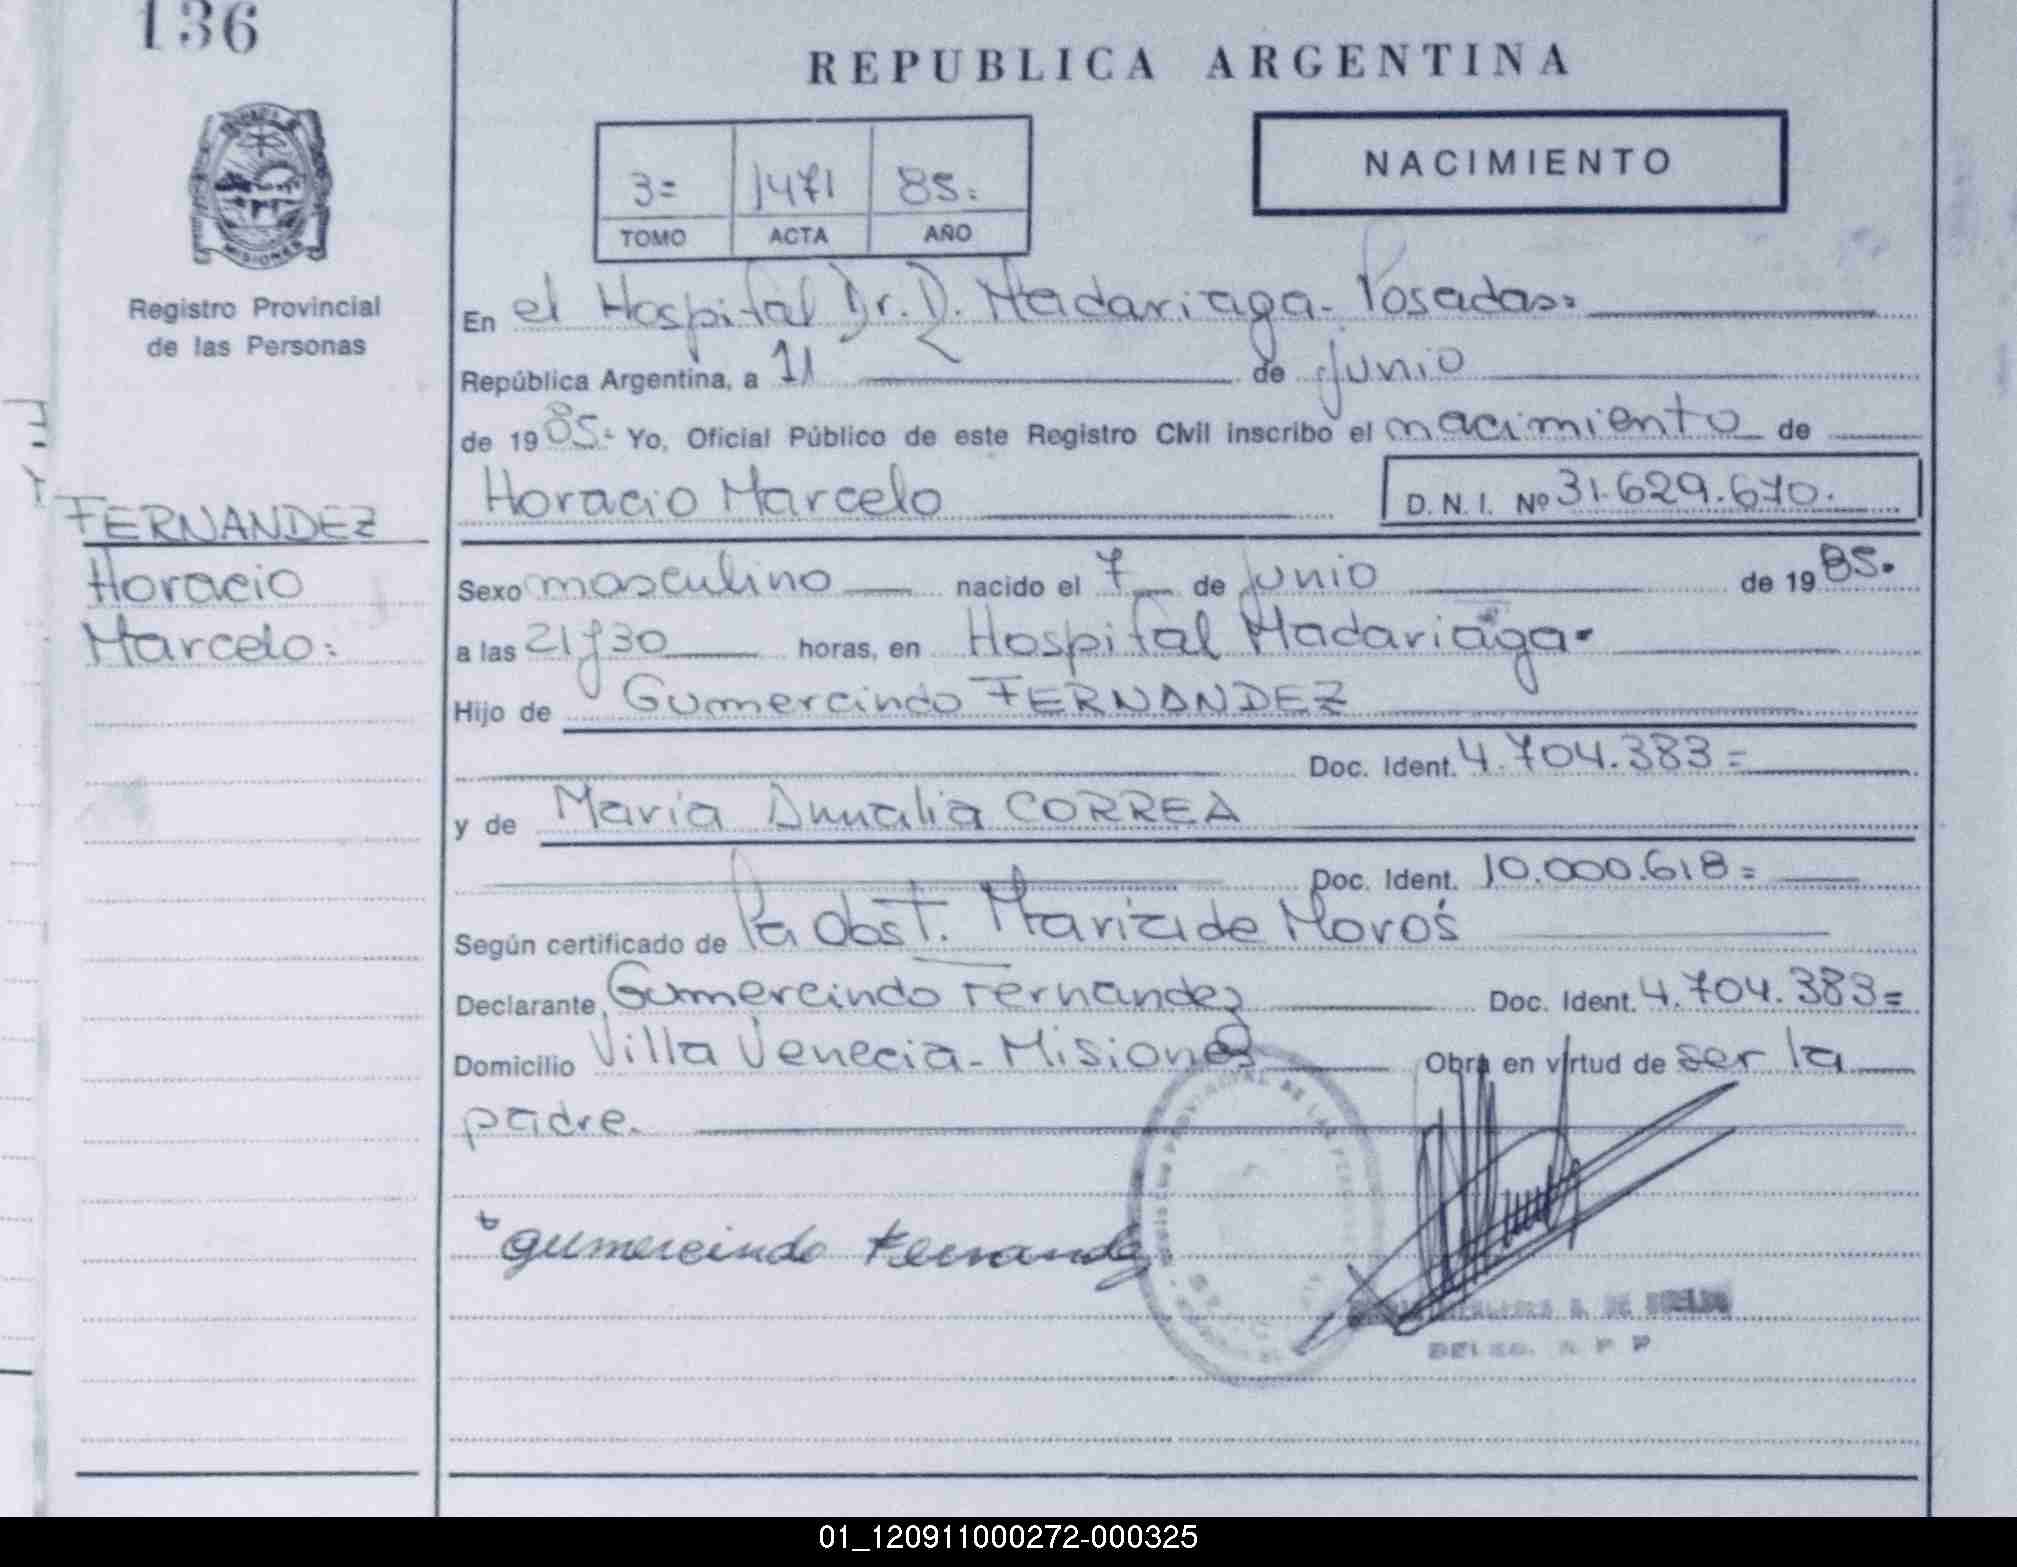 136
REPUBLICA ARGENTINA
3= 1471 85.
TOMO ACTA AÑO
NACIMIENTO
MISIONES
Registro Provincial
de las Personas
En el Hospital Dr. R. Madariaga - Posadas=
República Argentina, a 11 de junio
de 1985.- Yo, Oficial Público de este Registro Civil inscribo el nacimiento de
Horacio Marcelo D.N.I. Nº 31.629.670.
FERNANDEZ
Horacio
Marcelo:
Sexo masculino nacido el 7 de junio de 1985.
a las 21y30 horas, en Hospital Madariaga.
Hijo de Gumercindo FERNANDEZ
Doc. Ident. 4.704.383=
y de Maria Amalia CORREA
Doc. Ident. 10.000.618=
Según certificado de la Obst. Maria de
Declarante, Gumercindo Fernandez Doc. Ident. 4.704.383=
Domicilio Villa Venecia - Misiones Obra en virtud de ser la
padre.
Gumercindo Fernandez
01_120911000272-000325